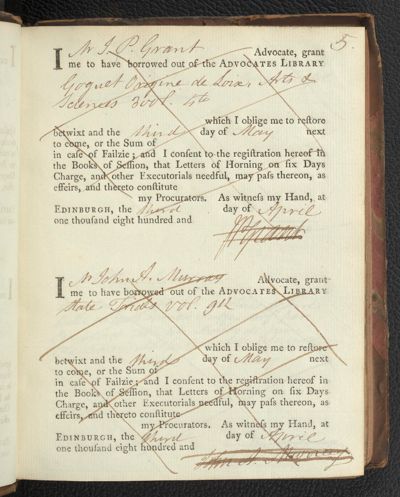 5.
I Mr J. P. Grant Advocate, grant
me to have borrowed out of the ADVOCATES LIBRARY
Goguet Origine de Loix, Arts &
Sciences 3 vol. 4to
which I oblige me to reſtore
betwixt and the third day of May next
to come, or the Sum of
in caſe of Failzie; and I conſent to the regiſtration hereof in
the Books of Seſſion, that Letters of Horning on ſix Days
Charge, and other Executorials needful, may paſs thereon, as
effeirs, and thereto conſtitute
my Procurators. As witneſs my Hand, at
EDINBURGH, the third day of April
one thouſand eight hundred and
I Mr John A. Murray Advocate, grant
me to have borrowed out of the ADVOCATES LIBRARY
State Vol. 9th
which I oblige me to reſtore
betwixt and the third day of May next
to come, or the Sum of
in caſe of Failzie; and I conſent to the regiſtration hereof in
the Books of Seſſion, that Letters of Horning on ſix Days
Charge, and other Executorials needful, may paſs thereon, as
effeirs, and thereto conſtitute
my Procurators. As witneſs my Hand, at
EDINBURGH, the third day of April
one thouſand eight hundred and
John A. Murray